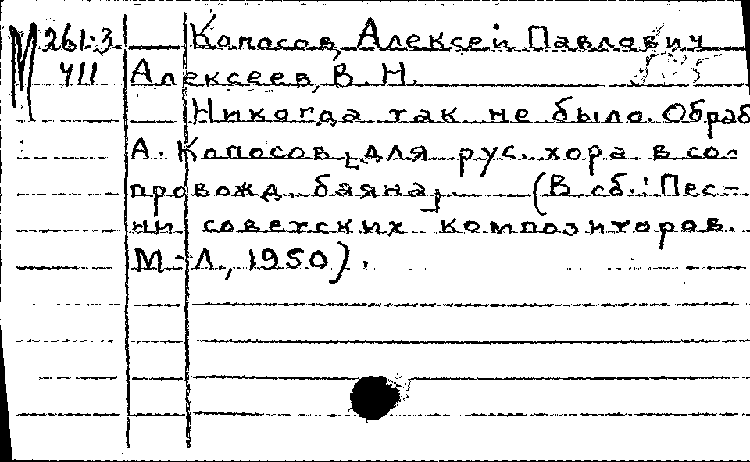 М 261-3 Копосов, Алексей Павлович
411 Алексеев, В. Н.
Никогда так не было. Обраб
А. Копосов [для рус. хора в со-
провожд. баяна]. (В сб.: Пес-
ни советских композиторов.
М-Л., 1950).